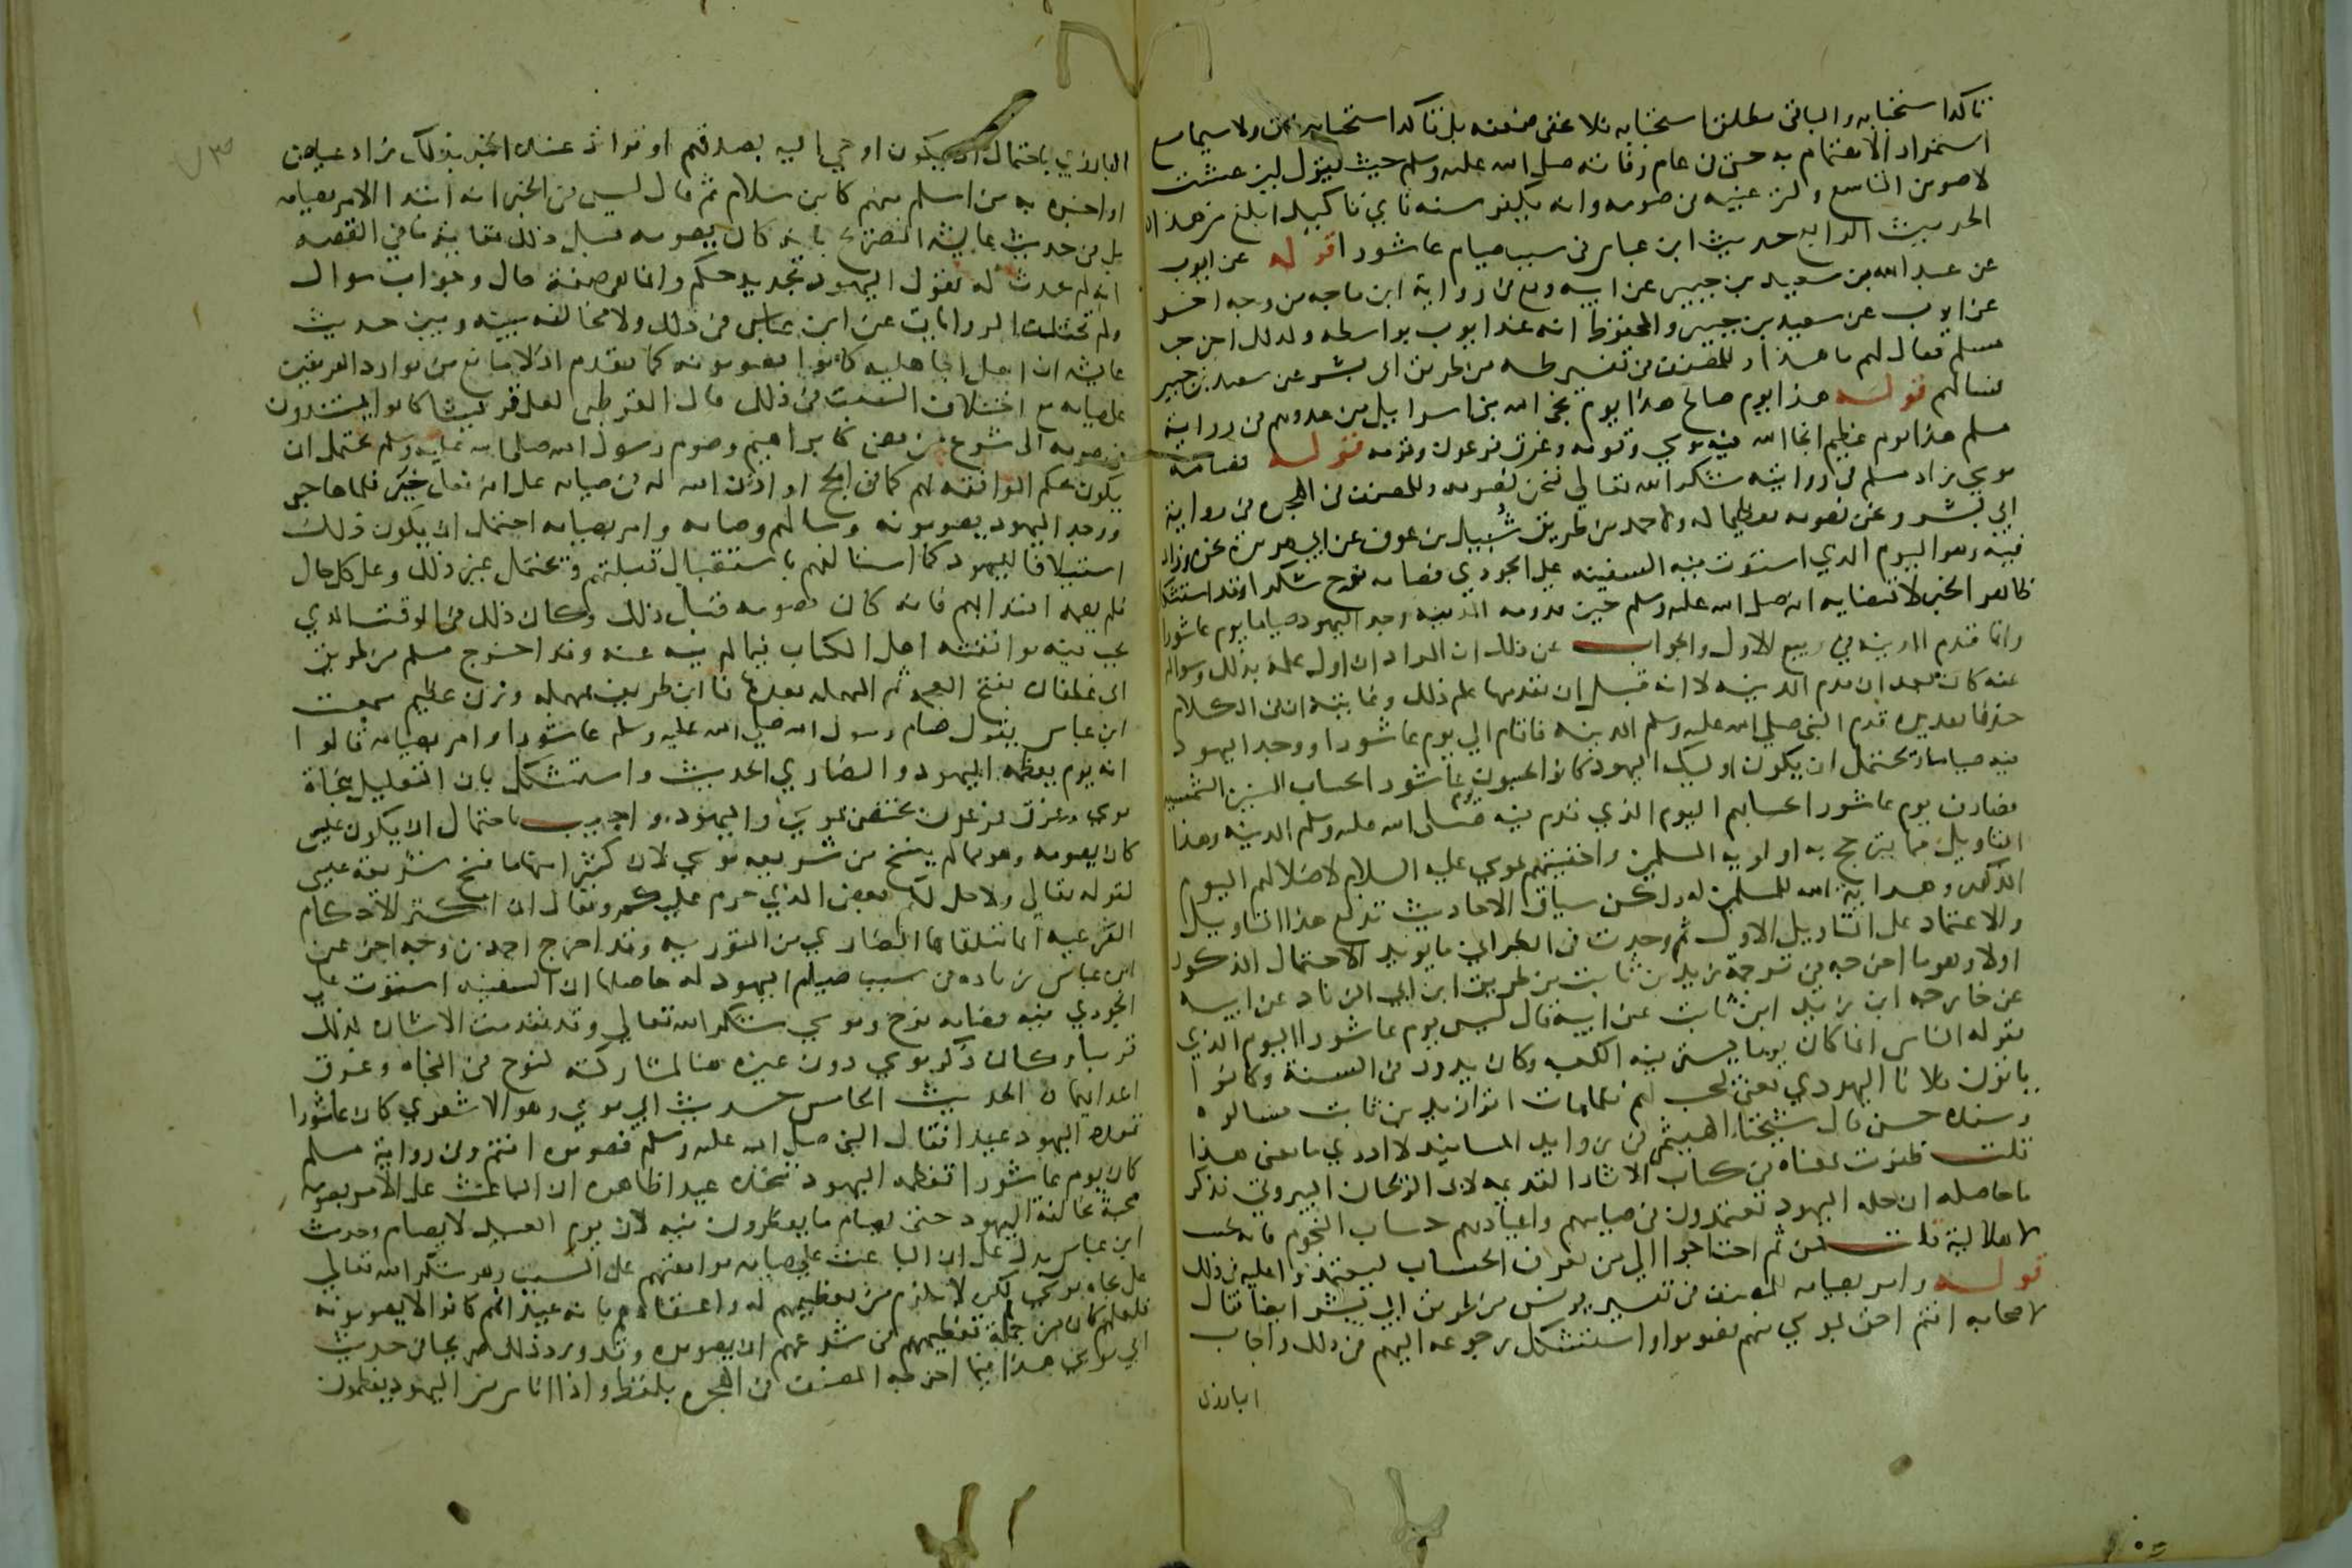 تاكد استحبابه والباقي مطلق استحبابه فلا يخفى ضعفه بل تاكد استحبابه باق ولا سيما مع
استمرار الاهتمام به حتى في عام وفاته صلى الله عليه وسلم حيث يقول لين عشت
لاصومن التاسع ولترغيبه في صومه وانه يكفر سنه فاي تاكيد ابلغ من هذا
الحديث الرابع حديث ابن عباس في سبب صيام عاشورا قوله عن ايوب
عن عبد الله بن سعيد بن جبير عن ابيه وقع في رواية ابن ماجه من وجه اخر
عن ايوب عن سعيد بن جبير والمحفوظ انه عند ايوب بواسطه ولذلك اخرجه
مسلم فقال لهم ما هذا وللمصنف في تفسير طه من طريق ابي بشر عن سعيد بن جبير
فسالهم قوله هذا يوم صالح هذا يوم نجى الله بني اسرائيل من عدوهم في رواية
مسلم هذا يوم عظيم انجا الله فيه موسي وقومه وغرق فرعون وقومه قوله فصامه
موسي زاد مسلم في روايته شكرا لله تعالي فنحن نصومه وللمصنف في الهجره في رواية
ابي بشر ونحن نصومه تعظيما له ولاحمد من طريق شبيل بن عوف عن ابي هريرة نحوه وزاد
فيه وهو اليوم الذي استوت فيه السفينه علي الجودي فصامه نوح شكرا وقد استشكل
ظاهر الخبر لاقتضايه انه صلى الله عليه وسلم حين قدومه المدينه وجد اليهود صياما يوم عاشورا
وانما قدم المدينه في ربيع الاول والجواب عن ذلك ان المراد ان اول علمه بذلك وسواله
عنه كان بعد ان قدم المدينه لا انه قبل ان يقدمها علم ذلك وغايته ان في الكلام
حذفا تقديره قدم النبي صلى الله عليه وسلم المدينه فاقام الي يوم عاشورا فوجد اليهود
فيه صياما ويحتمل ان يكون اوليك اليهود كانوا يحسبون يوم عاشورا بحساب السنين الشمسيه
فصادف يوم عاشورا بحسابهم اليوم الذي قدم فيه صلى الله عليه وسلم المدينه وهذا
التاويل مما يترجح به اولويه المسلمين واحقيتهم بموسي عليه السلام لاضلالهم اليوم
المذكور وهداية الله للمسلمين له ولكن سياق الاحاديث تدفع هذا التاويل
والاعتماد على التاويل الاول ثم وجدت في الطبراني ما يويد الاحتمال المذكور
اولا وهو ما اخرجه في ترجمة زيد بن ثابت من طريق ابن ابي الزناد عن ابيه
عن خارجه ابن زيد ابن ثابت عن ابيه قال ليس يوم عاشورا اليوم الذي
يقوله الناس انما كان يوما يستر فيه الكعبه وكان يدور في السنة وكانوا
ياتون فلانا اليهودي يعني ليحسب لهم فلما مات اتوا زيد بن ثابت فسالوه
وسنده حسن قال شيخنا الهيثمي في زوايد المسانيد لا ادري ما معنى هذا
قلت ظفرت بمعناه في كتاب الاثار القديمه لابي الريحان البيروني فذكر
ما حاصله ان جهله اليهود يعتمدون في صيامهم واعيادهم حساب النجوم فالسنه عندهم
لا هلالية قلت فمن ثم احتاجوا الي من يعرف الحساب ليعتمدوا عليه في ذلك
قوله وامر بصيامه للمصنف في تفسير يونس من طريق ابي بشر ايضا فقال
لاصحابه انتم احق بموسي منهم فصوموا واستشكل رجوعه اليهم في ذلك واجاب
المازري
المازري باحتمال ان يكون اوحي اليه بصدقهم او تواتر عنده الخبر بذلك زاد عياض
او اخبره به من اسلم منهم كابن سلام ثم قال ليس في الخبر انه ابتدا الامر بصيامه
بل في حديث عايشه التصريح بانه كان يصومه قبل ذلك فغاية ما في القصه
انه لم يحدث له بقول اليهود تجديد حكم وانما هو صفة حال وجواب سوال
ولم تختلف الروايات عن ابن عباس في ذلك ولا مخالفه بينه وبين حديث
عايشه ان اهل الجاهليه كانوا يصومونه كما تقدم اذ لا مانع من توارد الفريقين
على صيامه مع اختلاف السبب في ذلك قال القرطبي لعل قريشا كانوا يستندون
في صومه الى شرع من مضى كابراهيم وصوم رسول الله صلى الله عليه وسلم يحتمل ان
يكون بحكم الموافقه لهم كما في الحج او اذن الله له في صيامه على انه فعل خير فلما هاجر
ووجد اليهود يصومونه وسالهم وصامه وامر بصيامه احتمل ان يكون ذلك
استيلافا لليهود كما استالفهم باستقبال قبلتهم ويحتمل غير ذلك وعلى كل حال
فلم يصمه اقتدا بهم فانه كان يصومه قبل ذلك وكان ذلك في الوقت الذي
يحب فيه موافقته اهل الكتاب فيما لم ينه عنه وقد اخرج مسلم من طريق
ابي غطفان بفتح المعجمه ثم المهمله بعدها فا ابن طريف بمهمله وزن عظيم سمعت
ابن عباس يقول صام رسول الله صلى الله عليه وسلم عاشورا وامر بصيامه قالوا
انه يوم يعظمه اليهود والنصاري الحديث واستشكل بان التعليل بنجاة
موسي وغرق فرعون يختص بموسي واليهود واجيب باحتمال ان يكون عيسى
كان يصومه وهو مما لم ينسخ من شريعه موسي لان كثيرا منها ما نسخ بشريعة عيسى
لقوله تعالي ولاحل لكم بعض الذي حرم عليكم ويقال ان اكثر الاحكام
الفرعيه انما تتلقاها النصاري من التوريه وقد اخرج احمد من وجه اخر عن
ابن عباس زياده في سبب صيام اليهود له حاصلها ان السفينه استوت علي
الجودي فيه فصامه نوح وموسي شكرا لله تعالي وقد تقدمت الاشاره لذلك
قريبا وكان ذكر موسي دون غيره هنا لمشاركته لنوح في النجاه وغرق
اعدايهما الحديث الخامس حديث ابي موسي وهو الاشعري كان عاشورا
تعده اليهود عيدا فقال النبي صلى الله عليه وسلم فصوموه انتم وفي رواية مسلم
كان يوم عاشورا تعظمه اليهود تتخذه عيدا ظاهره ان الباعث على الامر بصومه
محبة مخالفة اليهود حتى يصام ما يفطرون فيه لان يوم العيد لا يصام وحديث
ابن عباس يدل على ان الباعث علي صيامه موافقتهم على السبب وهو شكر الله تعالي
على نجاه موسي لكن لا يلزم من تعظيمهم له واعتقادهم بانه عيد انهم كانوا لا يصومونه
فلعلهم كان من جملة تعظيمهم في شرعهم ان يصوموه وقد ورد ذلك صريحا في حديث
ابي موسي هذا فيما اخرجه المصنف في الهجره بلفظ واذا اناس من اليهود يعظمون